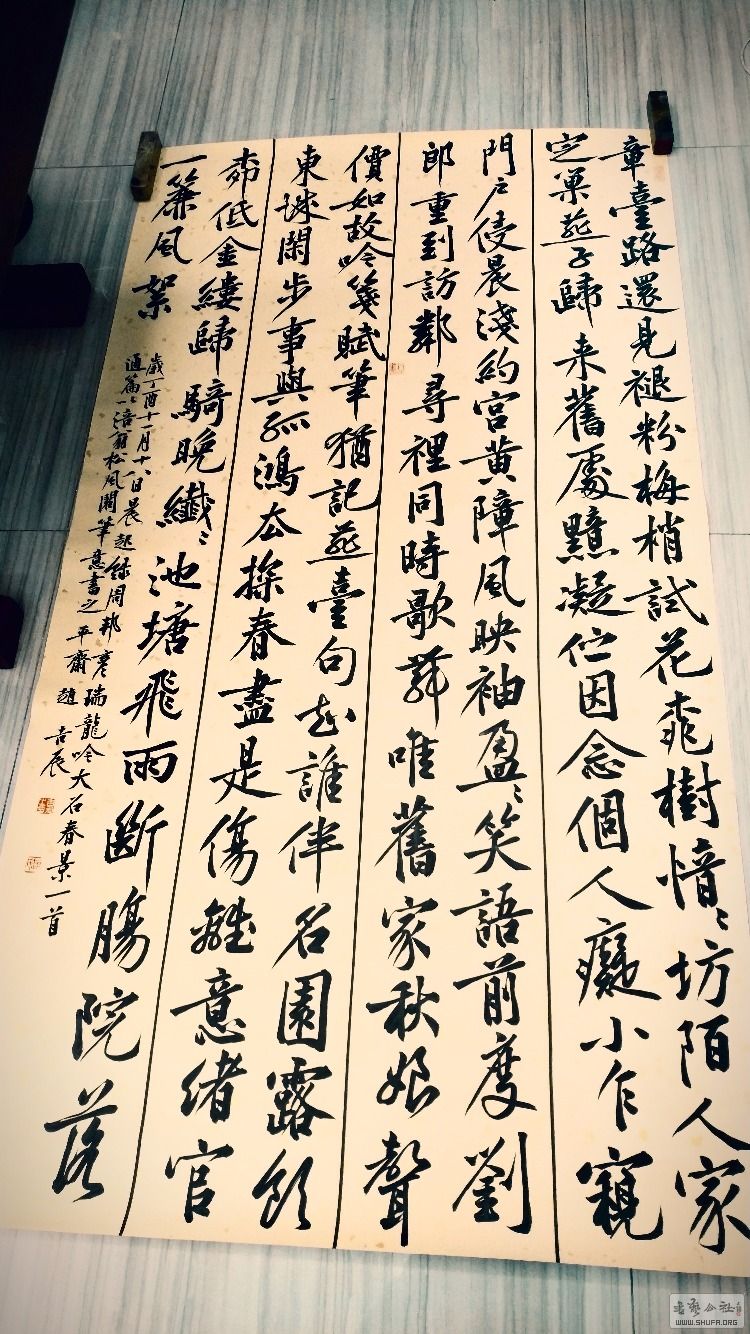 章臺路還見褪粉梅梢試花桃樹愔〻坊陌人家
定巢燕子歸来舊處黯凝伫因念個人癡小乍窺
門戶侵晨淺約宮黄障風映袖盈〻笑語前度劉
郎重到訪鄰尋裡同時歌舞唯舊家秋娘聲
價如故吟箋賦筆猶記燕臺句知誰伴名園露飲
東城閑步事與孤鴻去探春盡是傷離意緒官
柳低金縷歸騎晚纖〻池塘飛雨斷腸院落
一簾風絮
歲丁酉十一月十八日晨起録周邦彦瑞龍吟大石春景一首
通篇以涪翁松風閣筆意書之平齋趙吉辰
書藝公社
WWW.SHUFA.ORG